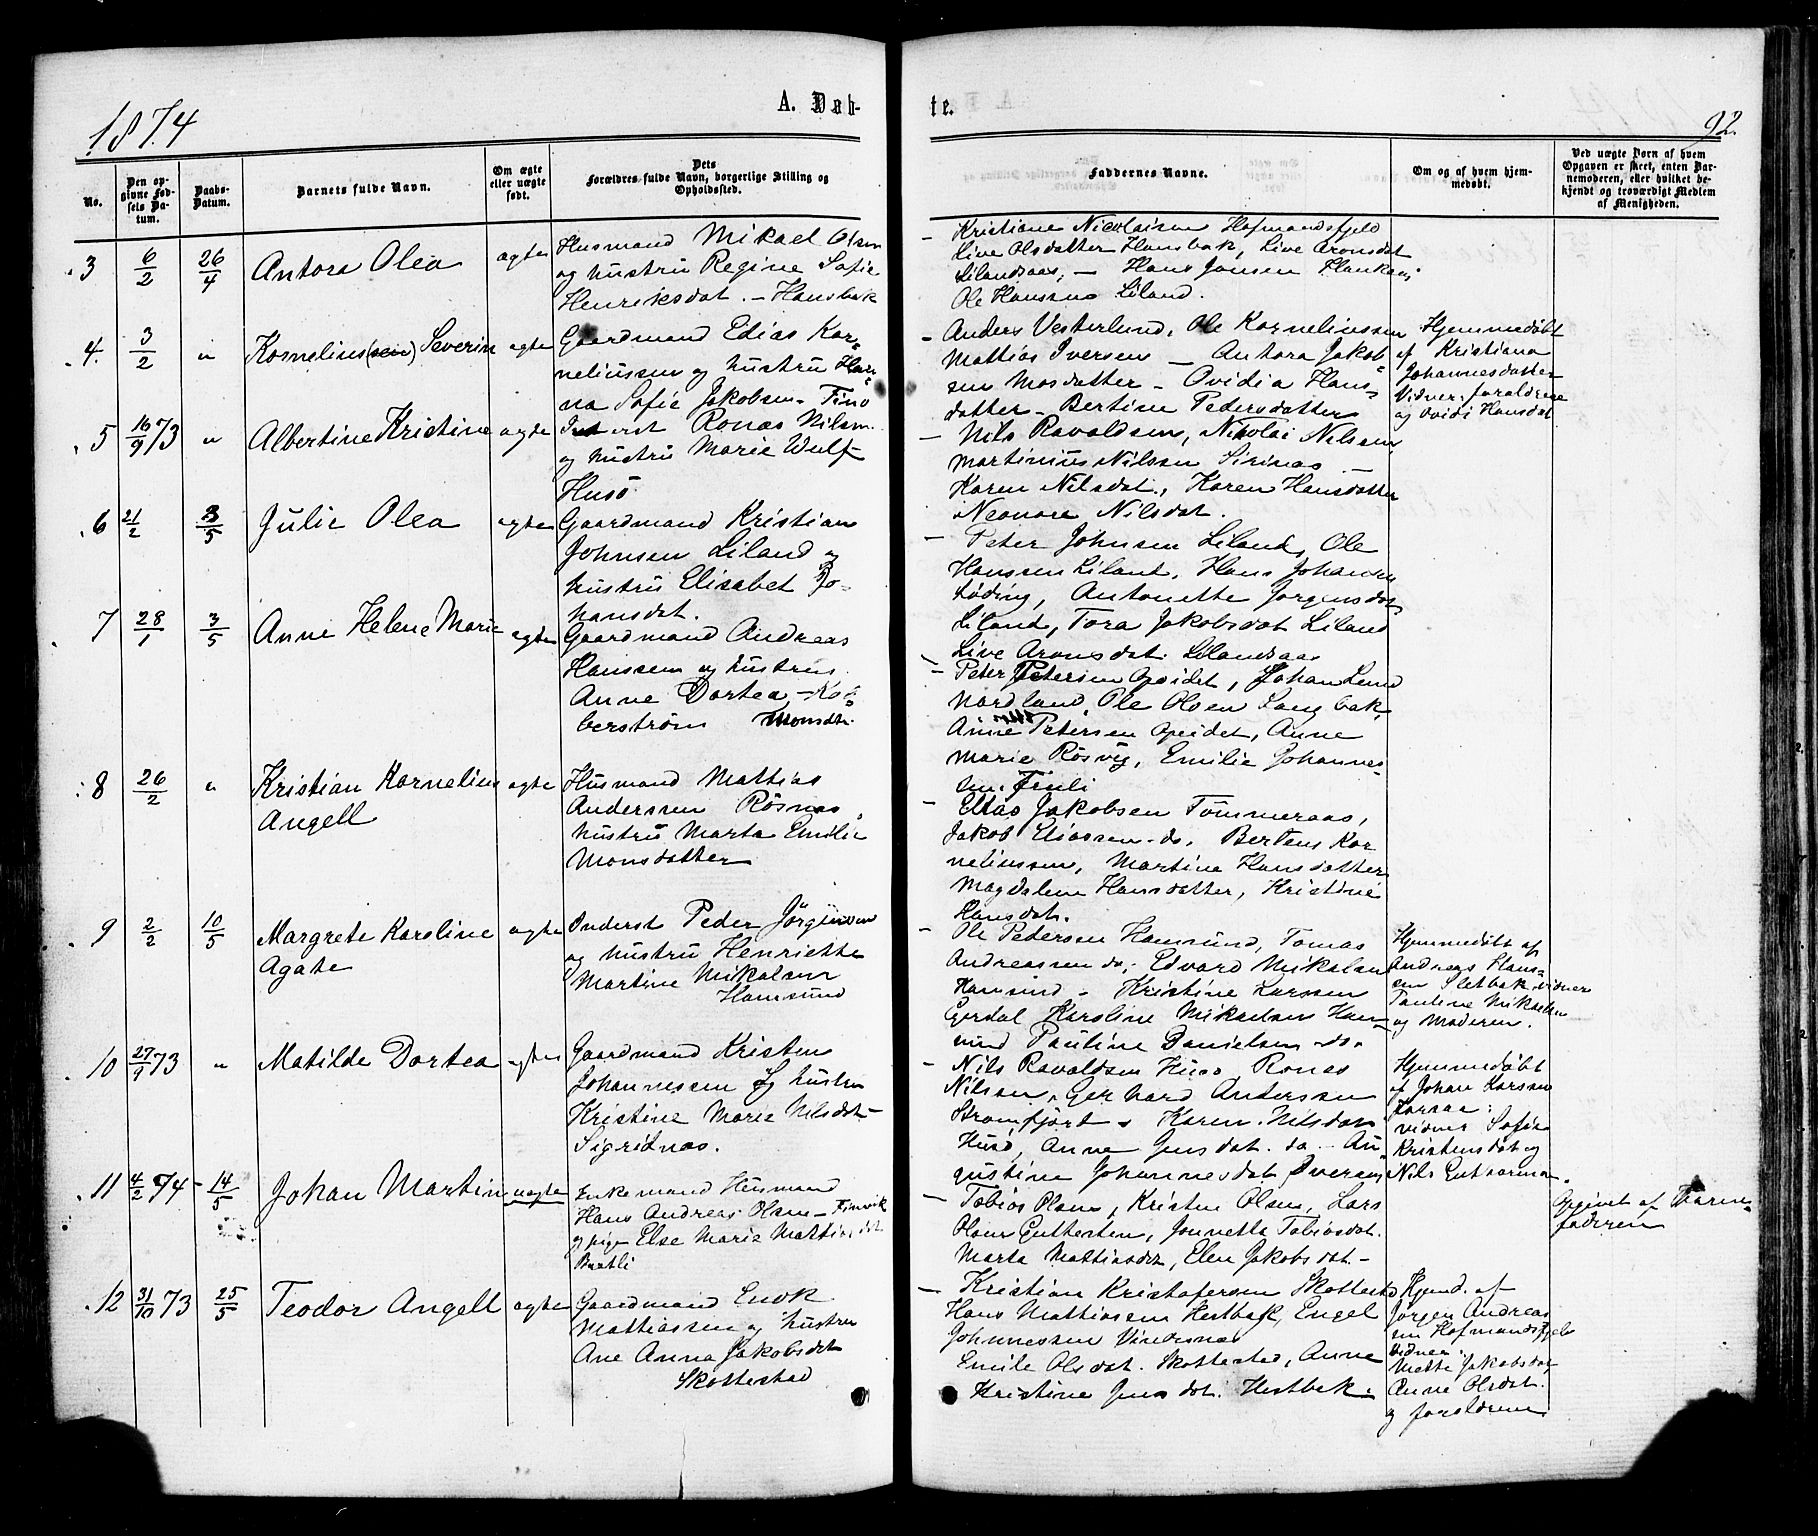 1874
A. Døb-
te.
92.
No.
Den op-
givne Fød-
sels Da-
tum.
Daabs-
Datum.
Barnets fulde Navn.
Om ægte
eller uægte
født.
Dets
Forældres fulde Navn, borgerlige Stilling og
Opholdssted.
Faddernes Navne.
Om og af hvem hjem-
medøbt.
Ved uægte Børn af hvem
Opgaven er skeet, enten Bar-
nemoderen, eller hvilket be-
kjendt og troværdigt Medlem
af Menigheden.
3 6/2 26/4 Antora Olea ægte
Husmand Mikael Olsen
og hustru Regine Sofie
Henriksdat. - Hansbak
- Kristiane Nicolaisen Hofmandsfjeld
Live Olsdatter Hansbak, Live Aronsdat
Lilandsaas, - Hans Jansen
Ole Hanssens Liland.
4. 3/2 " Kornelius (sen) Severin ægte
Gaardmand Edias Kor-
neliussen og hustru Han-
na Sofie Jakobsen -
- Anders Vesterlund, Ole Korneliussen
Mattias Iversen - Antora Jakob
sen Mosdatter - Ovidia Hans-
datter - Bertine Pedersdatter
Hjemmedøbt
af Kristiana
Johannesdatter
Vidner: foraldrene
og Ovidi Hansdat
5 16/9 73 " Albertine Kristine ægte
Inderst Ronas Nilsen
og hustru Marie Wulf
Husö
- Nils Ravaldsen, Nikolai Nilssen
Martinius Nilssen Sirinas -
Karen Nilsdat., Karen Hansdatter
Neonore Nilsdat.
6 21/2 3/5 Julie Olea ægte
Gaardmand Kristian
Johnsen Liland og
hustru Elisabet Jo-
hansdat.
- Peter Johnsen Liland, Ole
Hanssen Liland, Hans Johansen
Löding, Antonette Jørgensdat
Liland, Tora Jakobsdat Liland
Live Aronsdat. Lilandsaas
7 28/1 3/5 Anne Helene Marie ægte
Gaardmand Andreas
Hanssen og hustru
Anne Dortea - Ko-
berström Monsdtr.
- Peter Petersen Opeidet, Johan Lund
Nordland, Ole Olsen Langbak,
Anne Petersen Opeidet, Anne
Marie Rösvig, Emilie Johannes-
sen
8 26/2 " Kristian Kornelius ægte
Angell
Husmand Mattias
Anderssen Rösnas,
hustru Marta Emilie
Monsdatter
- Elias Jakobsen Tömmeraas,
Jakob Eliassen - do. Bertens Kor
neliussen, Martine Hansdatter
Magdalene Hansdatter, Kristine
Hansdat.
9 2/2 10/5 Margrete Karoline ægte
Agate
Inderst Peder Jörgensen
og hustru Henriette
Martine Mikalsen
Hamsund
- Ole Pedersen Hamsund, Tomas
Andreassen do, Edvard Mikalsen
Hamsund - Kristine Larssen
Egerdal Karoline Mikaelsen Ham-
sund Pauline Danielsen do.
Hjemmedöbt af
Andreas Hans-
sen Sletbak, vidner
Pauline Mikaelsen
og Moderen.
10 27/9 73 " Matilde Dortea ægte
Gaardmand Kristen
Johannessen og hustru
Kristine Marie Nilsdat -
Sigridnas.
- Nils Ravaldsen Husö, Ronas
Nilsen, Gerhard Anderssen
Stromfjord - Karen Nilsdat
Husö, Anne Jensdat. do - Au-
gustine Johannesdat
Hjemmedöbt
af Johan Larssen
Korsae:
vidner Sofie
Kristensdat og
Nils Guttormsen.
11 4/2 74 - 14/5 Johan Martin uægte
Enkemand Husmand
Hans Andreas Olsen - Finnvik
og pige Else Marie Mattiasdat
Bratli
- Tobias Olsen, Kristen Olsen, Lars
Olsen Jonnetta Tobiasdat.
Marta Mattiasdat, Elen Jakobsdat -
Opgivet af Barne-
faderen
12 31/10 73 25/5 Teodor Angell ægte
Gaardmand Enok
Mattiassen og hustru
Ane Anna Jakobsdat
Skottestad
- Kristian Kristofersen Skottestad
Hans Mattiasen Hestbak, Engel
Johannessen Vindsnas
Emilie Olsdat. Skottestad, Anne
Kristine Jensdat. Hestbak.
Hjemd. af
Jørgen Andreas
sen Hofmandsfjeld
Vidner:
Mette Jakobsdat,
Anne Olsdat.
og foraldrene